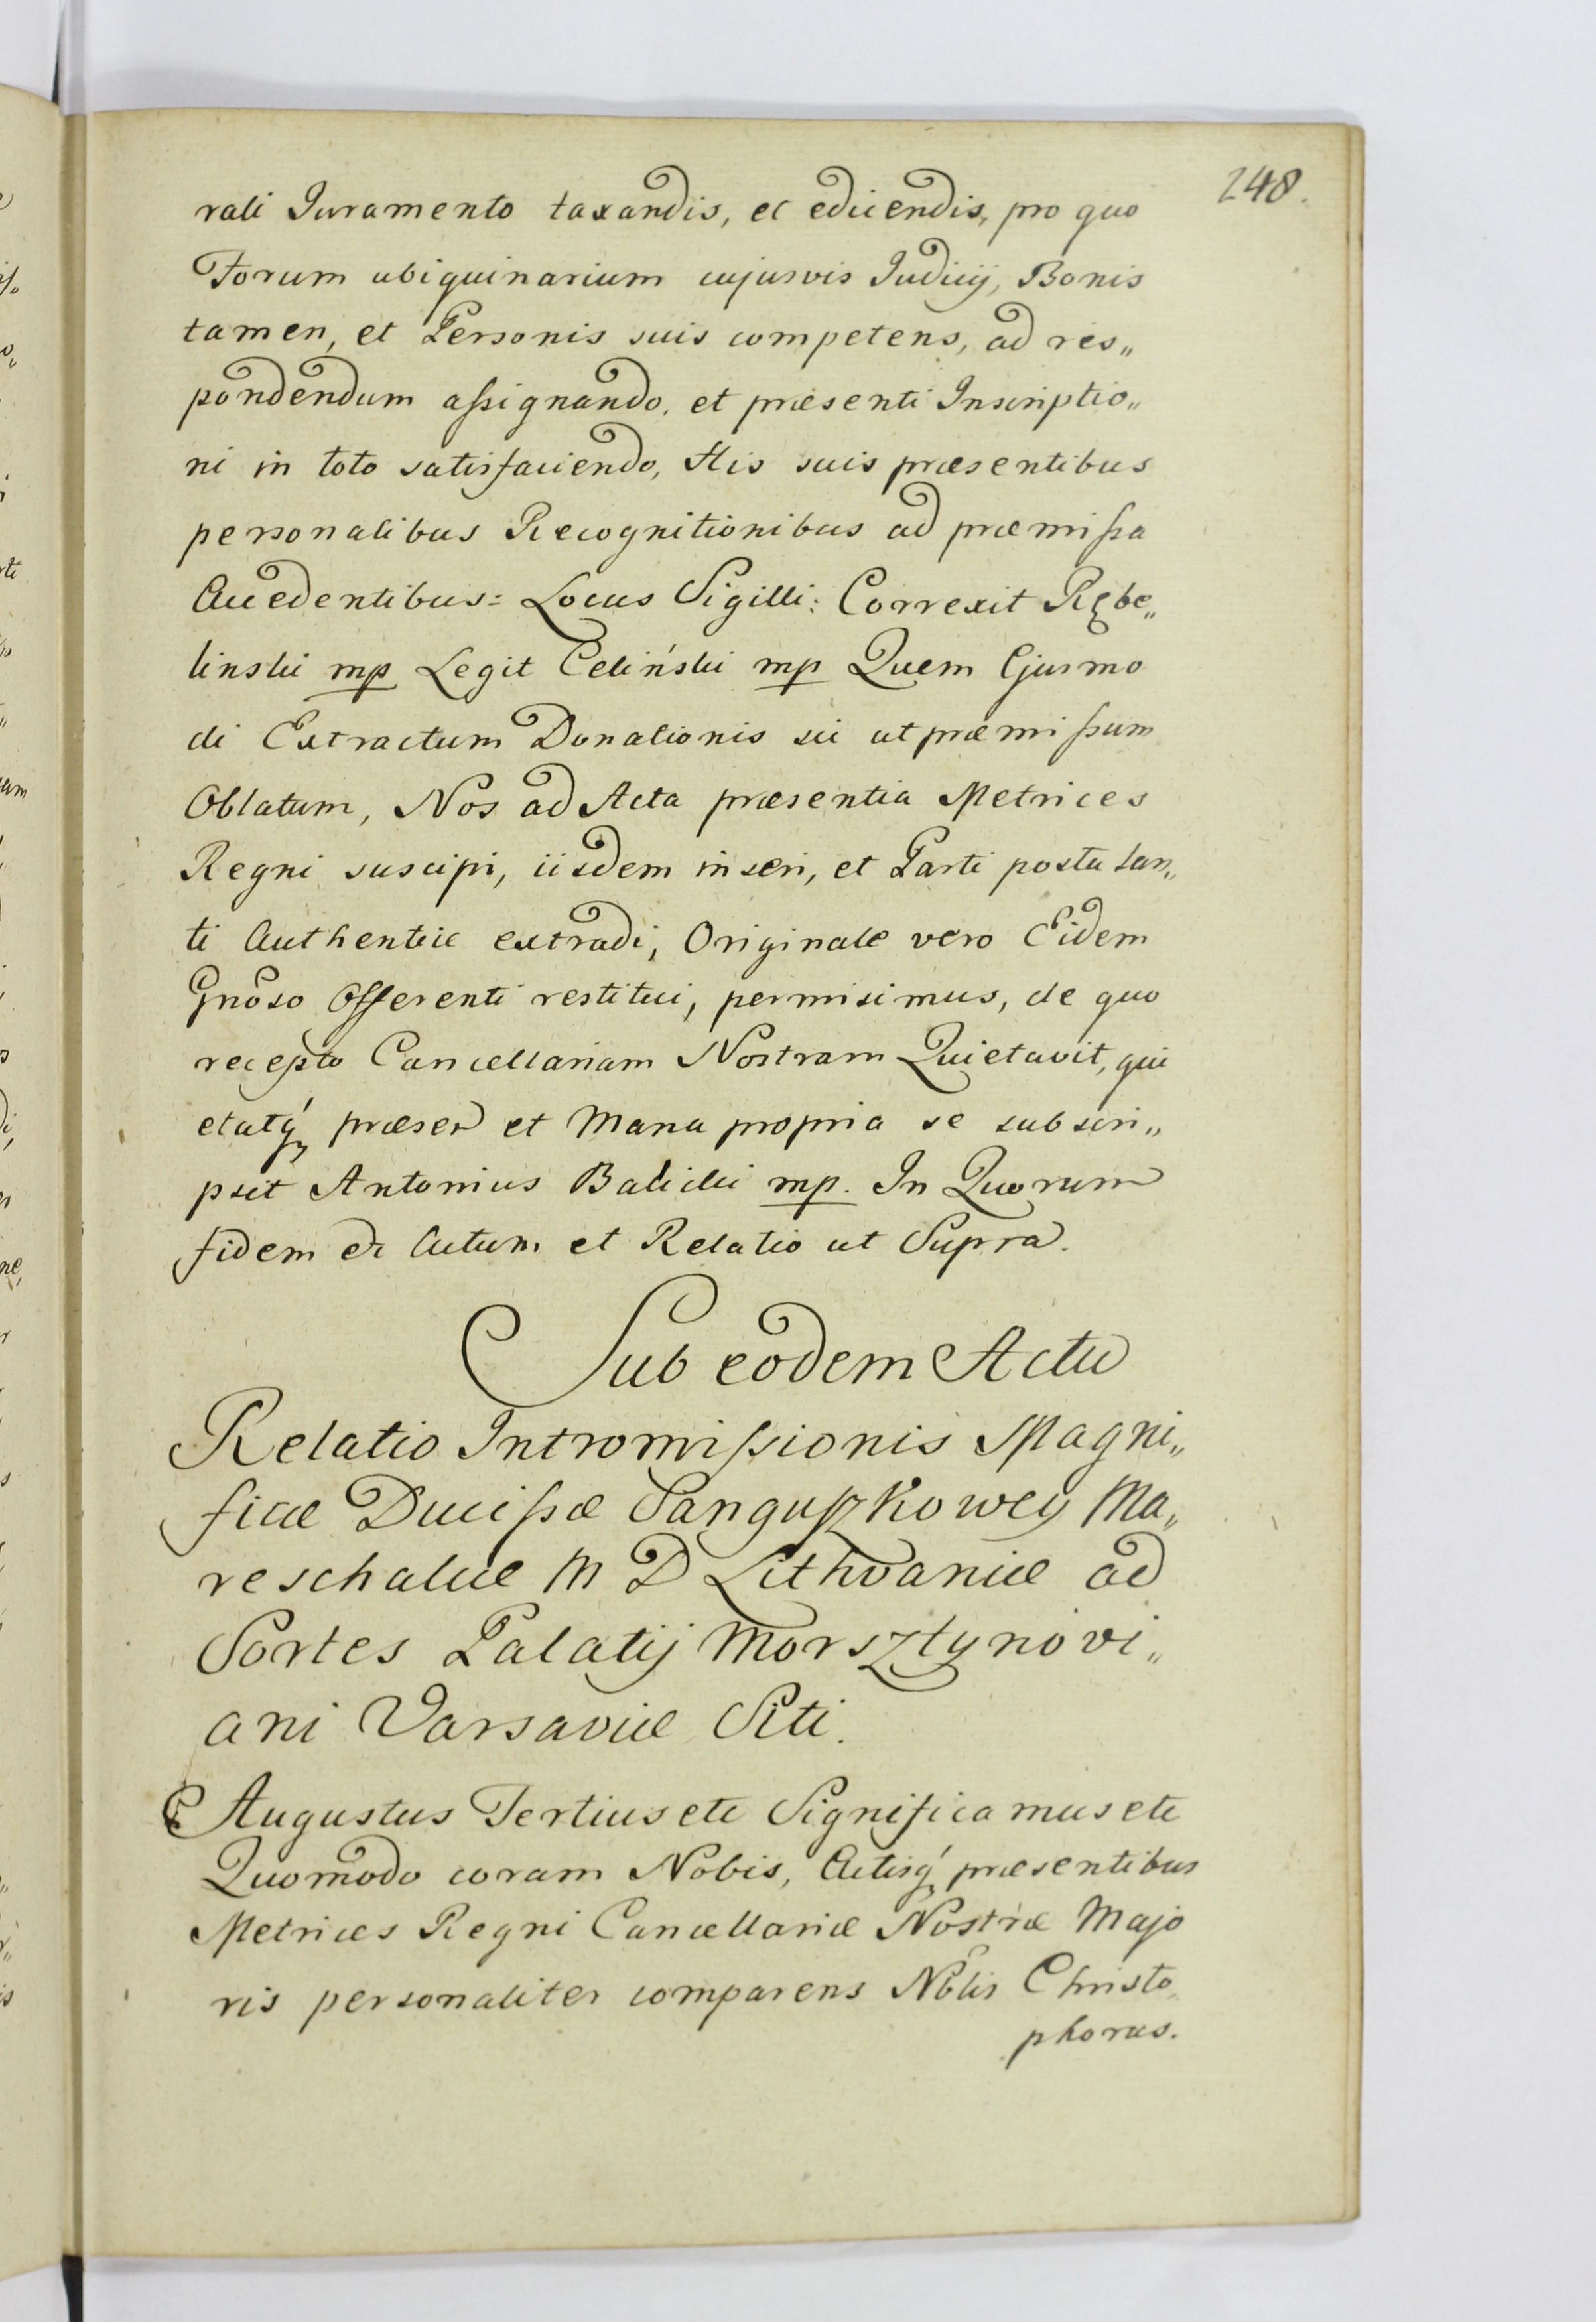 248.
rali Juramento taxandis, et edicendis, pro quo
Forum ubiquinarium cujusvis Judicij, Bonis
tamen, et Personis suis competens, ad res„
pondendum assignando, et præsenti Inscriptio„
ni in toto satisfaciendo, His suis præsentibus
personalibus Recognitionibus ad præmissa
Accedentibus: Locus Sigilli: Correxit Rębe„
linski mp Legit Celiński mp Quem Ejusmo
di Extractum Donationis sic ut præmissum
Oblatum, Nos ad Acta præsentia Metrices
Regni suscipi, iisdem inseri, et Parti postulan„
ti Authentice extradi, Originale vero Eidem
Gnoso Offerenti restitui, permisimus, de quo
recepto Cancellariam Nostram Quietavit, qui
etatq́ præsen et Manu propria se subscri„
psit Antonius Balicki mp. In Quorum
fidem etc Actum et Relatio ut Supra.
Sub eodem Actu
Relatio Intromissionis Magni„
ficæ Ducissæ Sanguszkowey Ma„
reschalcæ M D Lithvaniæ ad
Sortes Palatij Morsztynovi„
ani Varsaviæ Siti.
Augustus Tertius etc Significamus etc
Quomodo coram Nobis, Actisq́ præsentibus
Metrices Regni Cancellariæ Nostræ Majo
ris personaliter comparens Nblis Christo„
phorus.